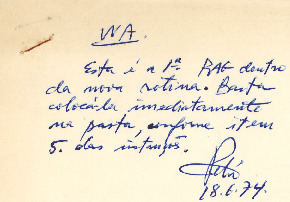 WA.
Esta é a 1ª RAE dentro
da nova rotina. Basta
colocá-la imediatamente
na pasta, conforme item
5. das instruçs.
18.6.74.